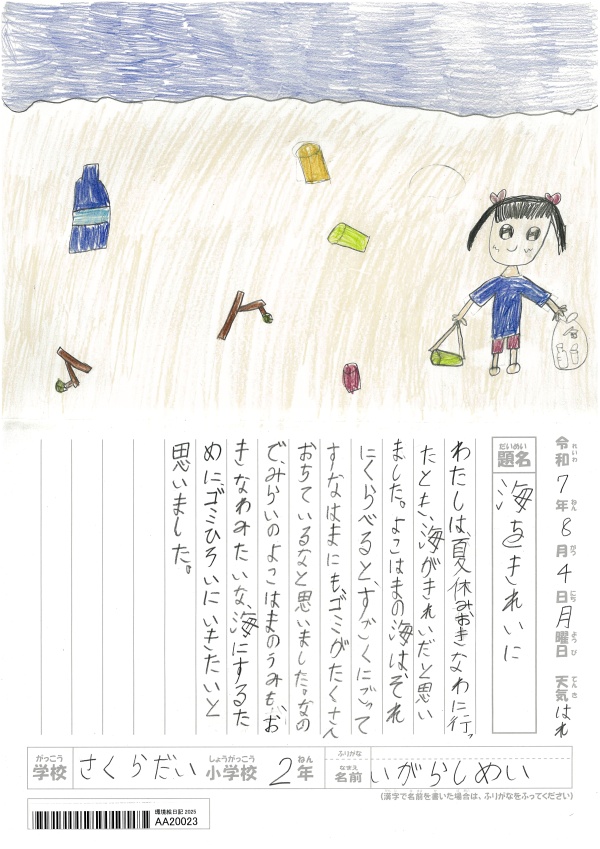 令和7年8月4日月曜日 天気はれ
れいわ ねん がつ にち ようび てんき
だいめい
題名
海をきれいに
わたしは、夏休みおきなわに行っ
たとき、海がきれいだと思い
ました。よこはまの海は、それ
にくらべると、すごくにごって
すなはまにも、ゴミがたくさん
おちているなと思いました。なの
で、みらいのよこはまのうみも、お
きなわみたいな、海にするた
めに、ゴミひろいにいきたいと
思いました。
がっこう しょうがっこう ねん ふりがな
学校 さくらだい 小学校 2年 名前 いがらしめい
なまえ
(漢字で名前を書いた場合は、ふりがなをふってください)
環境絵日記 2025
AA20023